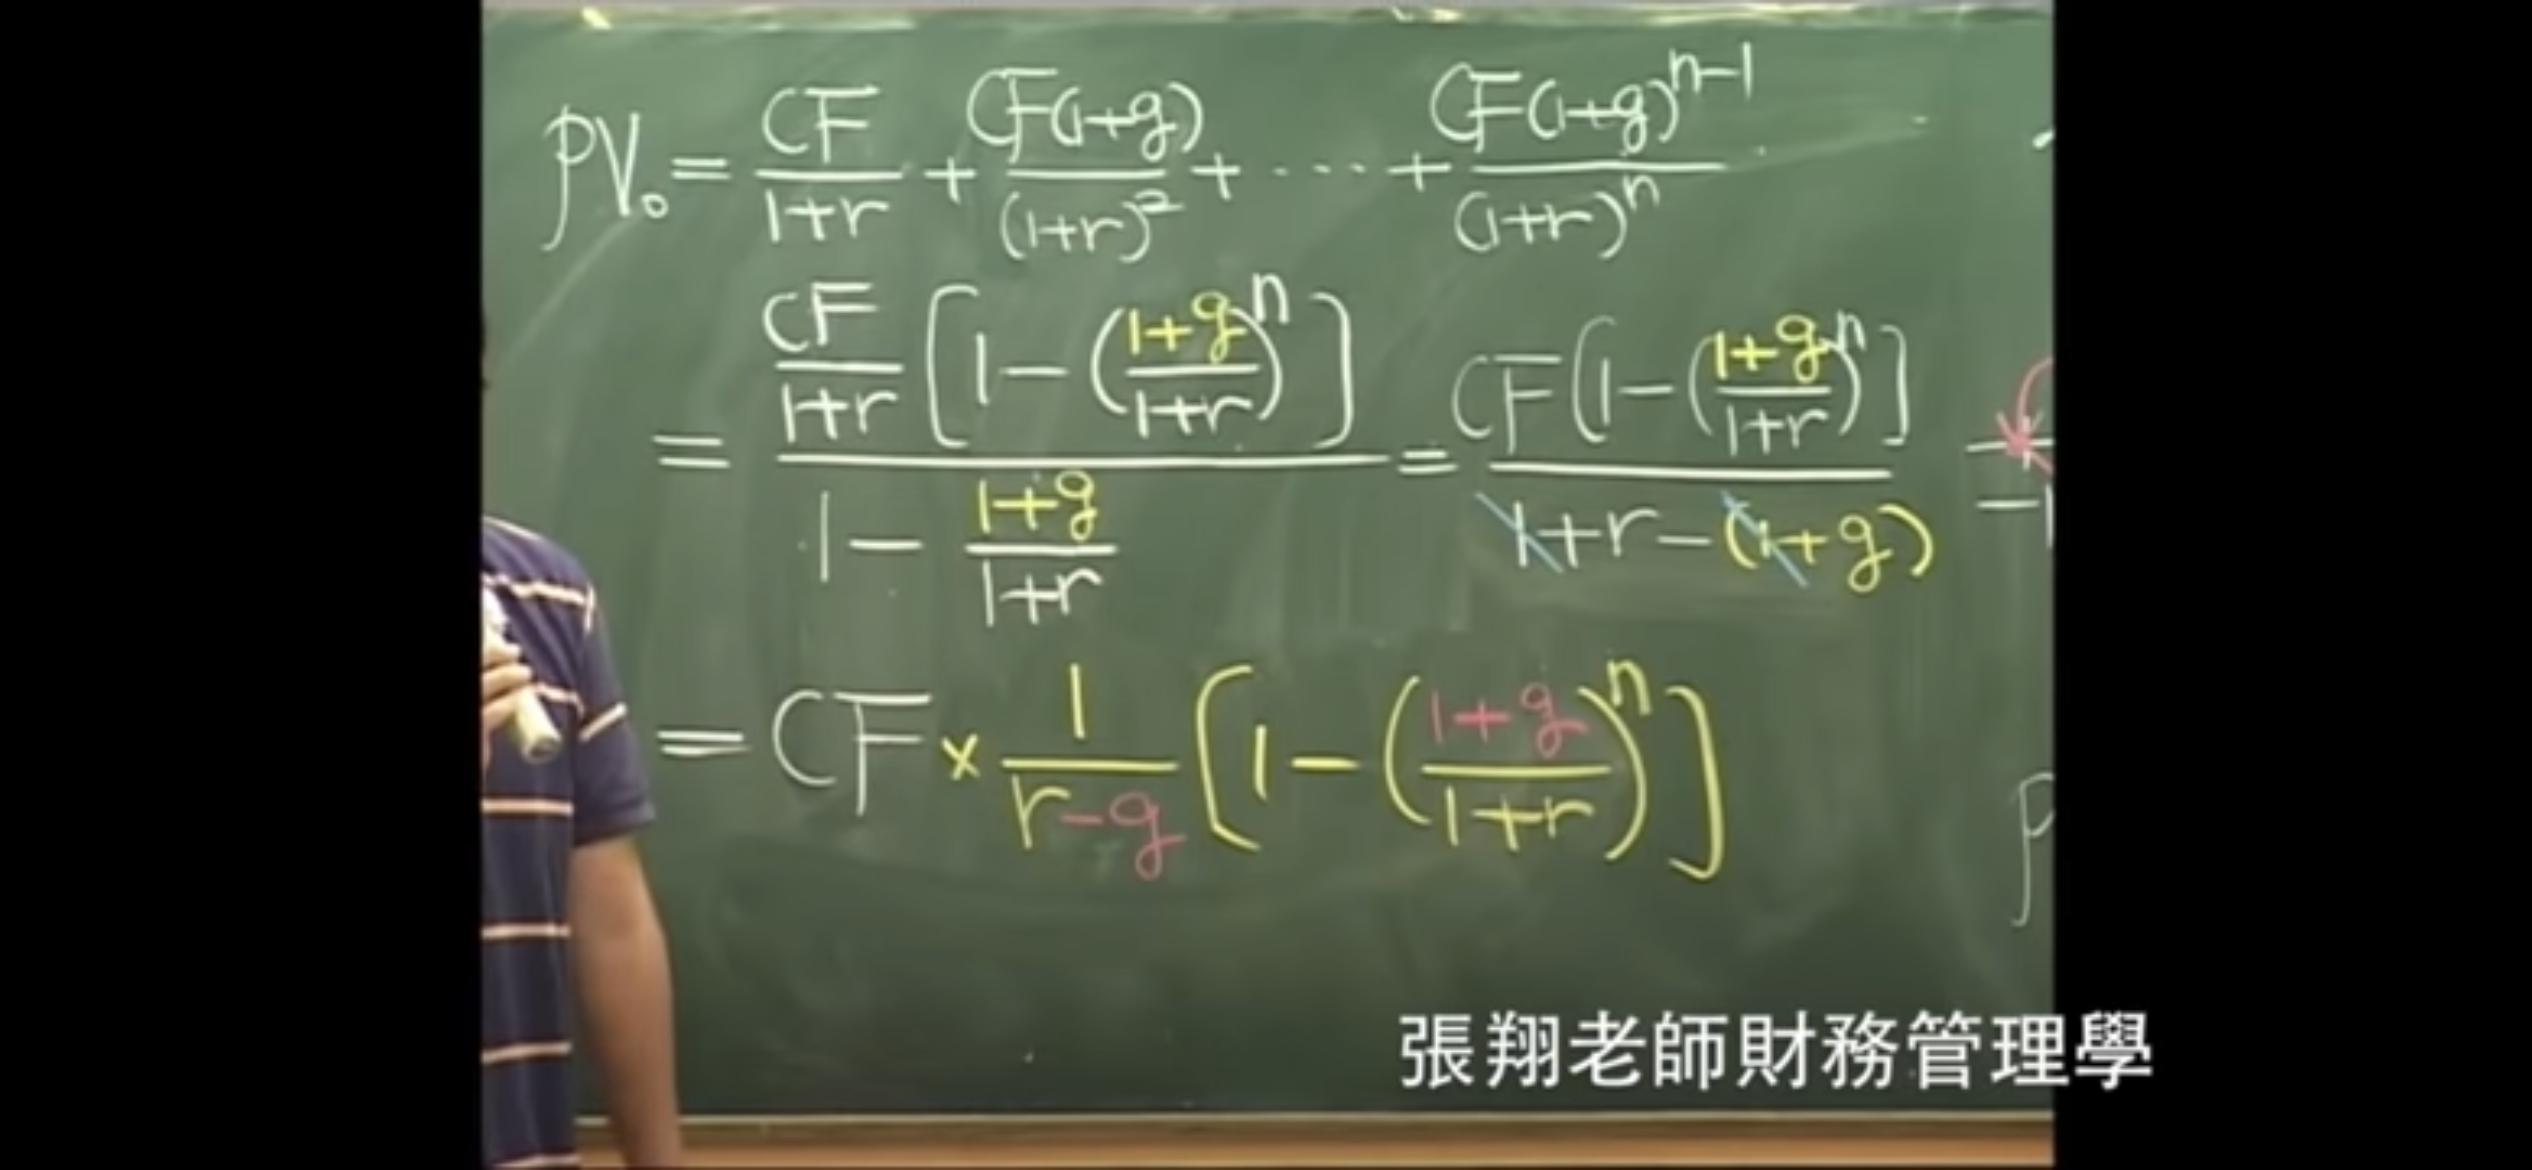 PV₀ = CF/(1+r) + CF(1+g)/(1+r)² + ⋯ + CF(1+g)ⁿ⁻¹/(1+r)ⁿ
= CF/(1+r) [1 − ((1+g)/(1+r))ⁿ] / (1 − (1+g)/(1+r)) = CF[1 − ((1+g)/(1+r))ⁿ] / (1+r−(1+g))
= CF × 1/(r−g) [1 − ((1+g)/(1+r))ⁿ]
張翔老師財務管理學